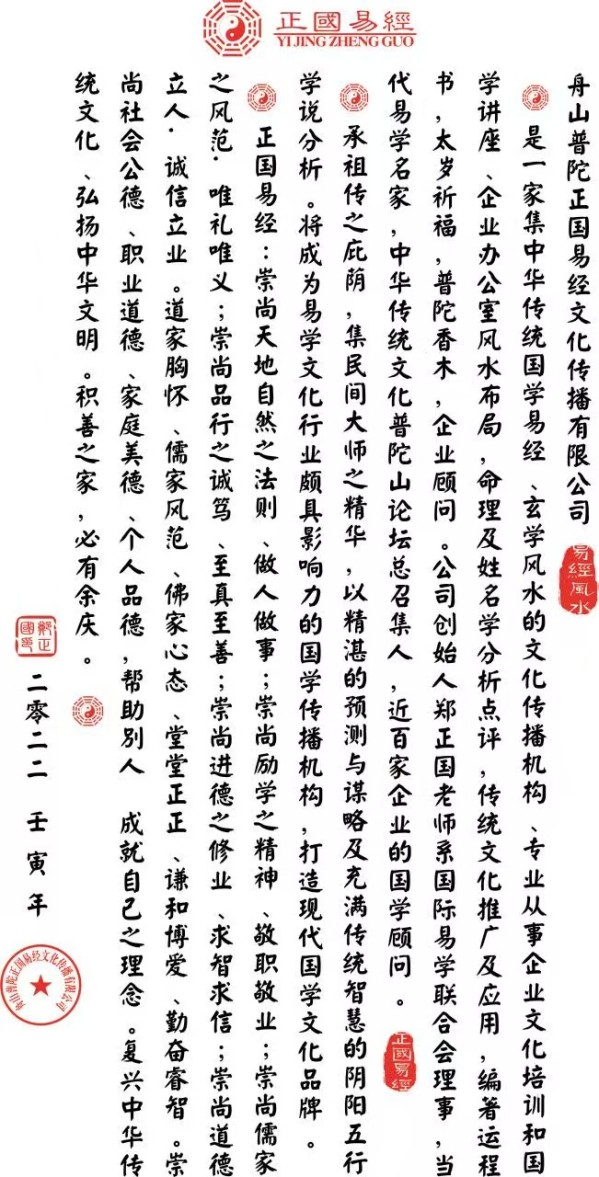 正國易經
YI JING ZHENG GUO
舟山普陀正国易经文化传播有限公司
易經風水
是一家集中华传统国学易经、玄学风水的文化传播机构、专业从事企业文化培训和国
学讲座、企业办公室风水布局,命理及姓名学分析点评,传统文化推广及应用,编著运程
书,太岁祈福,普陀香木,企业顾问。公司创始人郑正国老师系国际易学联合会理事,当
代易学名家,中华传统文化普陀山论坛总召集人,近百家企业的国学顾问。
正國易經
承祖传之庇荫,集民间大师之精华,以精湛的预测与谋略及充满传统智慧的阴阳五行
学说分析。将成为易学文化行业颇具影响力的国学传播机构,打造现代国学文化品牌。
正国易经:崇尚天地自然之法则、做人做事;崇尚励学之精神、敬职敬业;崇尚儒家
之风范.唯礼唯义;崇尚品行之诚笃、至真至善;崇尚进德之修业、求智求信;崇尚道德
立人.诚信立业。道家胸怀、儒家风范、佛家心态、堂堂正正、谦和博爱、勤奋睿智。崇
尚社会公德、职业道德、家庭美德、个人品德,帮助别人 成就自己之理念。复兴中华传
统文化、弘扬中华文明。积善之家,必有余庆。
鄭正國印
二零二二 壬寅年
舟山普陀正国易经文化传播有限公司